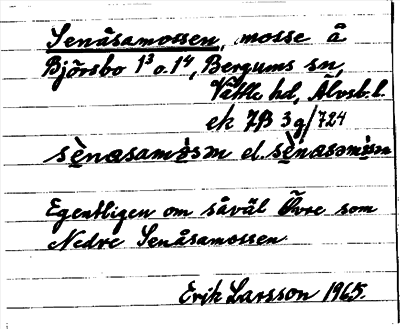 Senåsamossen, mosse å
Björsbo 1³ o. 1⁴, Bergums sn,
Vättle hd, Älvsb. l.
ek 7B 3g/724
el.
Egentligen om såväl Övre som
Nedre Senåsamossen
Erik Larsson 1965.